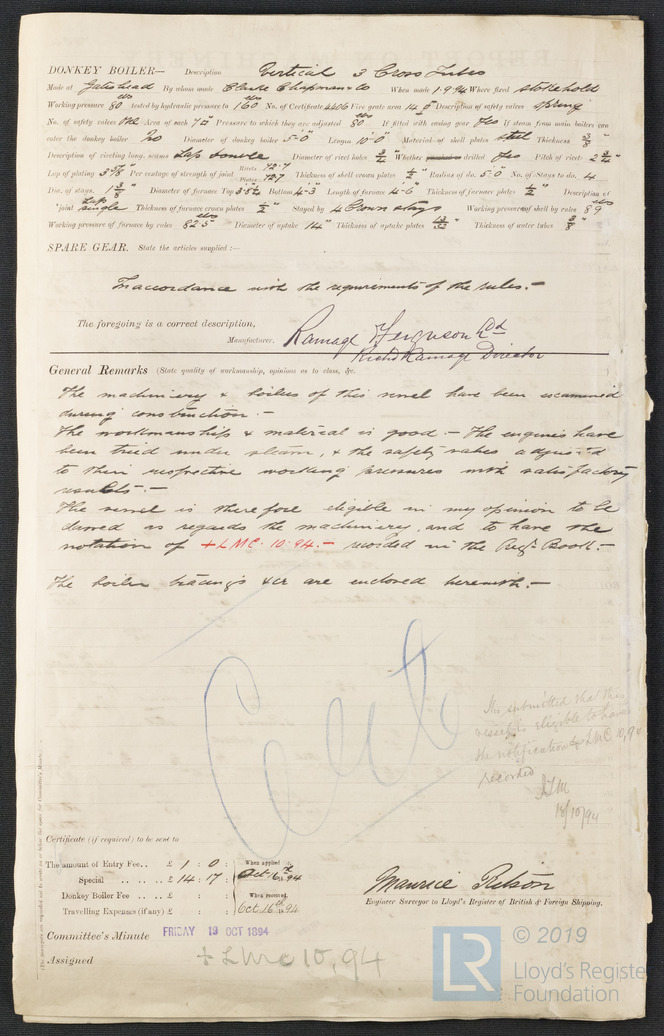 DONKEY BOILER— Description Vertical 3 Cross Tubes
Made at Gateshead By whom made Clarke Chapman & Co When made 1.9.94 Where fixed Stokehold
Working pressure 80 lbs tested by hydraulic pressure to 160 lbs No. of Certificate 4406 Fire grate area 14.0 Description of safety valves Spring
No. of safety valves One Area of each 7□" Pressure to which they are adjusted 80 lbs If fitted with easing gear Yes If steam from main boilers can
enter the donkey boiler No Diameter of donkey boiler 5-0" Length 10-0" Material of shell plates Steel Thickness 3/8"
Description of riveting long. seams Lap double Diameter of rivet holes 3/4" Whether drilled Yes Pitch of rivets 2 3/4"
Lap of plating 3 7/8" Per centage of strength of joint Rivets 72.7 Plates 72.7 Thickness of shell crown plates 1/2" Radius of do. 5-0" No. of Stays to do. 4
Dia. of stays. 1 3/8" Diameter of furnace Top Bottom 4-3" Length of furnace 4-6" Thickness of furnace plates 1/2" Description of
joint Lap single Thickness of furnace crown plates 1/2" Stayed by 4 Crown stays Working pressure of shell by rules 89 lbs
Working pressure of furnace by rules 82.5 lbs Diameter of uptake 14" Thickness of uptake plates 13/32" Thickness of water tubes 3/8"
SPARE GEAR. State the articles supplied:—
In accordance with the requirements of the rules.—
The foregoing is a correct description,
Manufacturer. Ramage Ferguson Ld
Richd Ramage Director
General Remarks (State quality of workmanship, opinions as to class, &c.
The machinery & boilers of this vessel have been examined
during construction.—
The workmanship & material is good.— The engines have
been tried under steam, & the safety valves adjusted
to their respective working pressures with satisfactory
results.—
The vessel is therefore eligible in my opinion to be
classed as regards the machinery, and to have the
notation of +LMC. 10.94.— recorded in the Reg. Book.—
The boiler tracings &c are enclosed herewith.—
It is submitted that this
vessel is eligible to have
the notification +LMC 10,94
recorded
18/10/94
Certificate (if required) to be sent to
The amount of Entry Fee.. £ 1 : 0 : When applied
Special .. .. .. £ 14 : 17 : Oct 16th 94
Donkey Boiler Fee .. .. £ : : When received,
Travelling Expenses (if any) £ : : Oct 16th 94
Maurice
Engineer Surveyor to Lloyd's Register of British & Foreign Shipping.
Committee's Minute FRIDAY 19 OCT 1894
Assigned + LMC 10,94
LR © 2019
Lloyd's Registe
Foundation